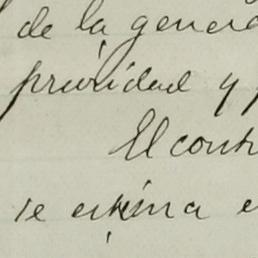 de la genera
prioridad y
El contr
se estima e